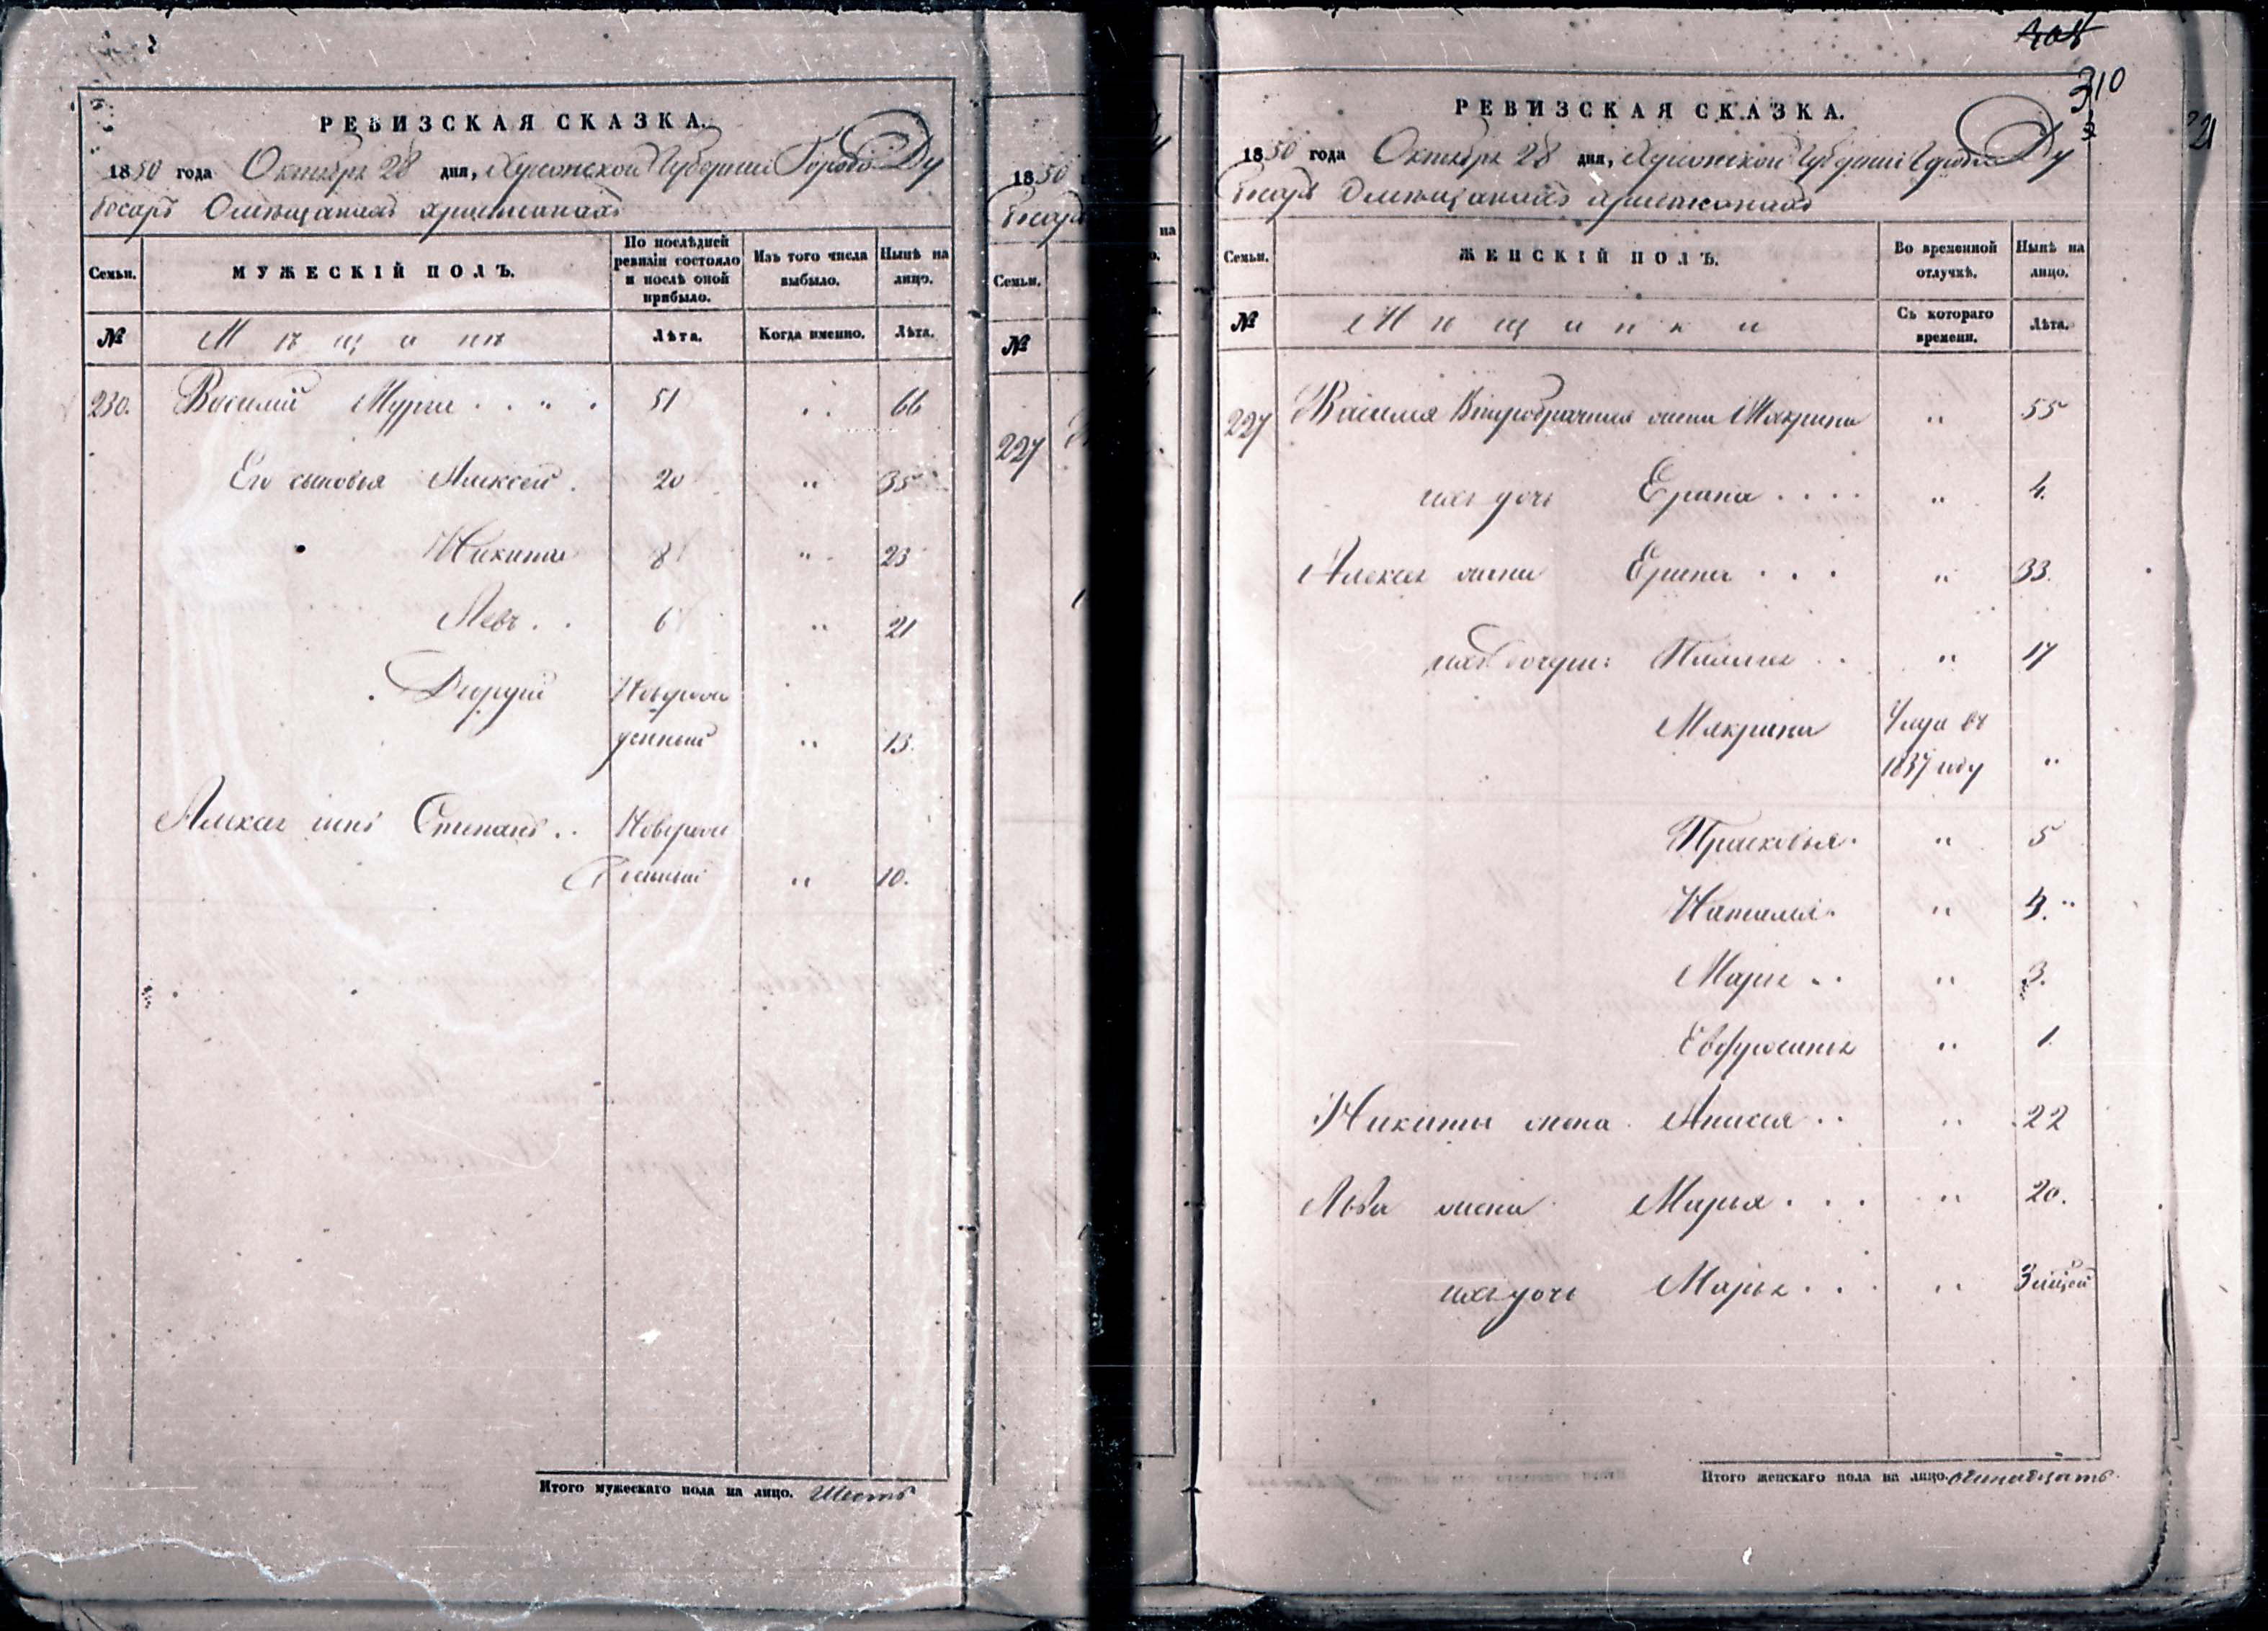 РЕВИЗСКАЯ СКАЗКА.
1850 года Октября 28 дня, Херсонской Губернии Города Ду
босаръ О мещанахъ христианахъ
Семьи.
МУЖЕСКІЙ ПОЛЪ.
По послѣдней ревизіи состояло и послѣ оной прибыло.
Изъ того числа выбыло.
Нынѣ на лицо.
№
Мѣщане
Лѣта.
Когда именно.
Лѣта.
230. Василий 51 66
Его сыновья Алексей 20 " 35
Никита 8 " 23
Левъ 6 " 21
Георгий Новорож
денный " 13.
Алексея сынъ Степанъ Новорож
денный " 10.
Итого мужескаго пола на лицо. Шесть
1850
босаръ
на
Семьи.
№
227
310
РЕВИЗСКАЯ СКАЗКА.
1850 года Октября 28 дня, Херсонской Губернии Города Ду
босаръ О мещанахъ христианахъ
Семьи.
ЖЕНСКІЙ ПОЛЪ.
Во временной отлучкѣ.
Нынѣ на лицо.
№
Мѣщанки
Съ котораго времени.
Лѣта.
227 Василия Второбрачная жена Макрина " 55
ихъ дочь Ерина " 4.
Алексея жена Ерина " 33.
ихъ дочери: " 17
Макрина въ
1837 году "
Прасковья " 5
Наталья " 4.
Марья " 3.
Евфросинья " 1
Никиты жена Анисия " 22
Льва жена Марья " 20.
ихъ дочь Марья " 3 месяца
Итого женскаго пола на лицо. одинадцать
21